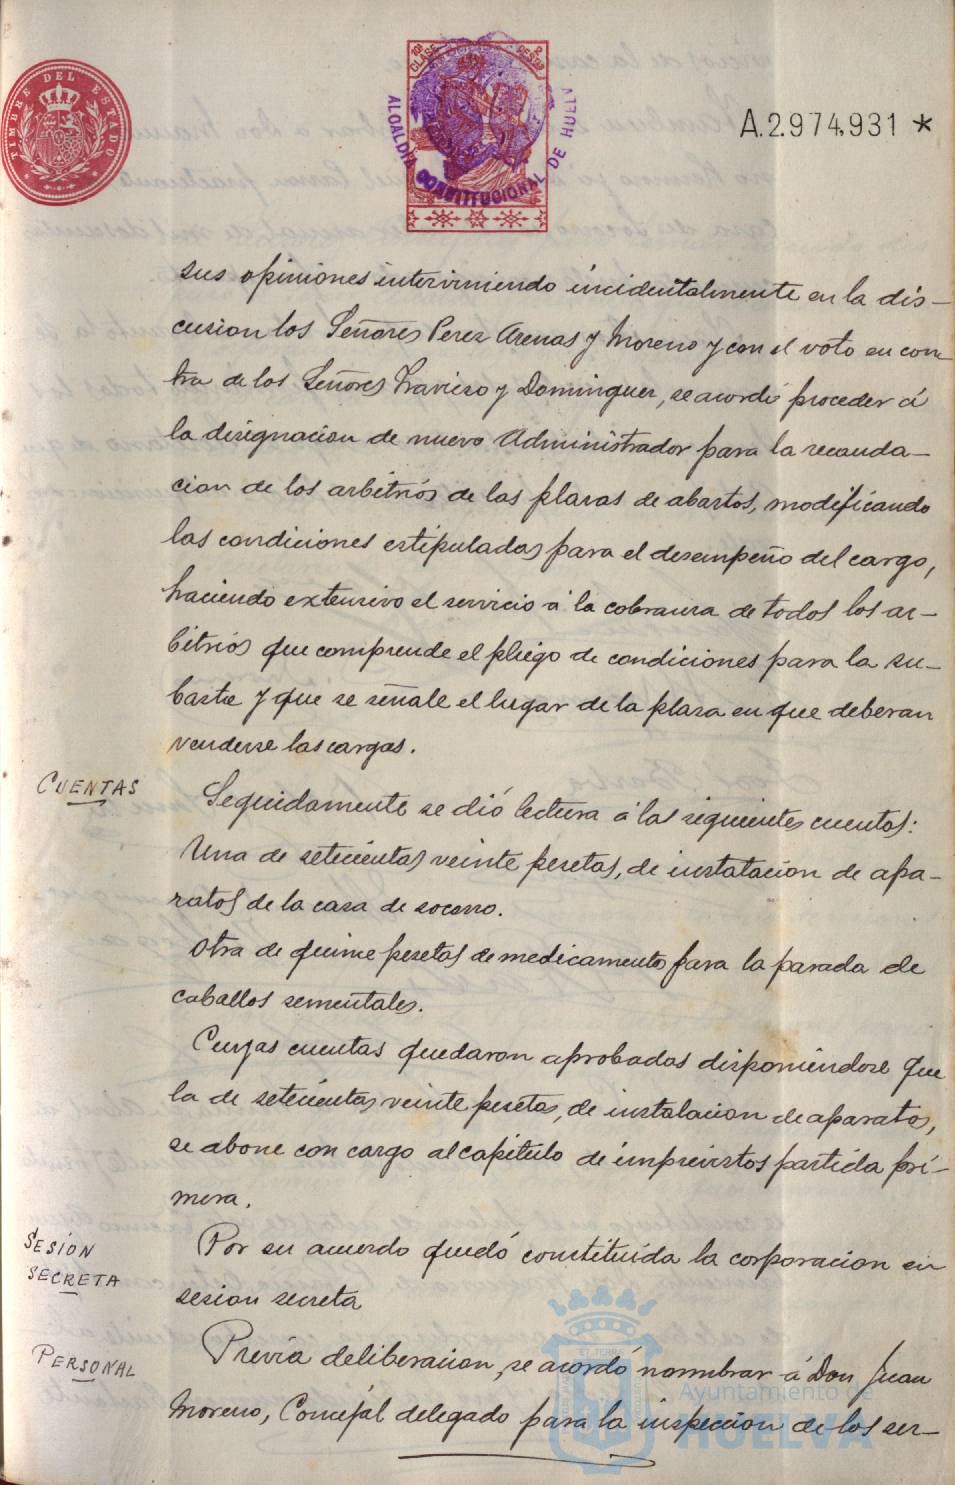 TIMBRE DEL ESTADO
10ª CLASE
2 PESTAS
ALCALDIA CONSTITUCIONAL DE HUELV
A.2.974.931 *
sus opiniones interviniendo incidentalmente en la dis-
cusion los Señores Perez Arenas y Moreno y con el voto en con-
tra de los Señores Travieso y Dominguez, se acordó proceder á
la designacion de nuevo Administrador para la recauda-
cion de los arbitrios de las plazas de abastos, modificando
las condiciones estipuladas para el desempeño del cargo,
haciendo extensivo el servicio á la cobranza de todos los ar-
bitrios que comprende el pliego de condiciones para la su-
basta y que se señale el lugar de la plaza en que deberan
venderse las cargas.
CUENTAS
Seguidamente se dió lectura á las siguientes cuentas:
Una de setecientas veinte pesetas, de instalacion de apa-
ratos de la casa de socorro.
Otra de quince pesetas de medicamentos para la parada de
caballos sementales.
Cuyas cuentas quedaron aprobadas disponiendose que
la de setecientas veinte pesetas, de instalacion de aparatos,
se abone con cargo al capitulo de imprevistos partida pri-
mera.
SESIÓN
SECRETA
Por su acuerdo quedó constituida la corporacion en
sesion secreta
PERSONAL
Previa deliberacion, se acordó nombrar á Don Juan
Moreno, Concejal delegado para la inspeccion de los ser-
Ayuntamiento de
HUELVA